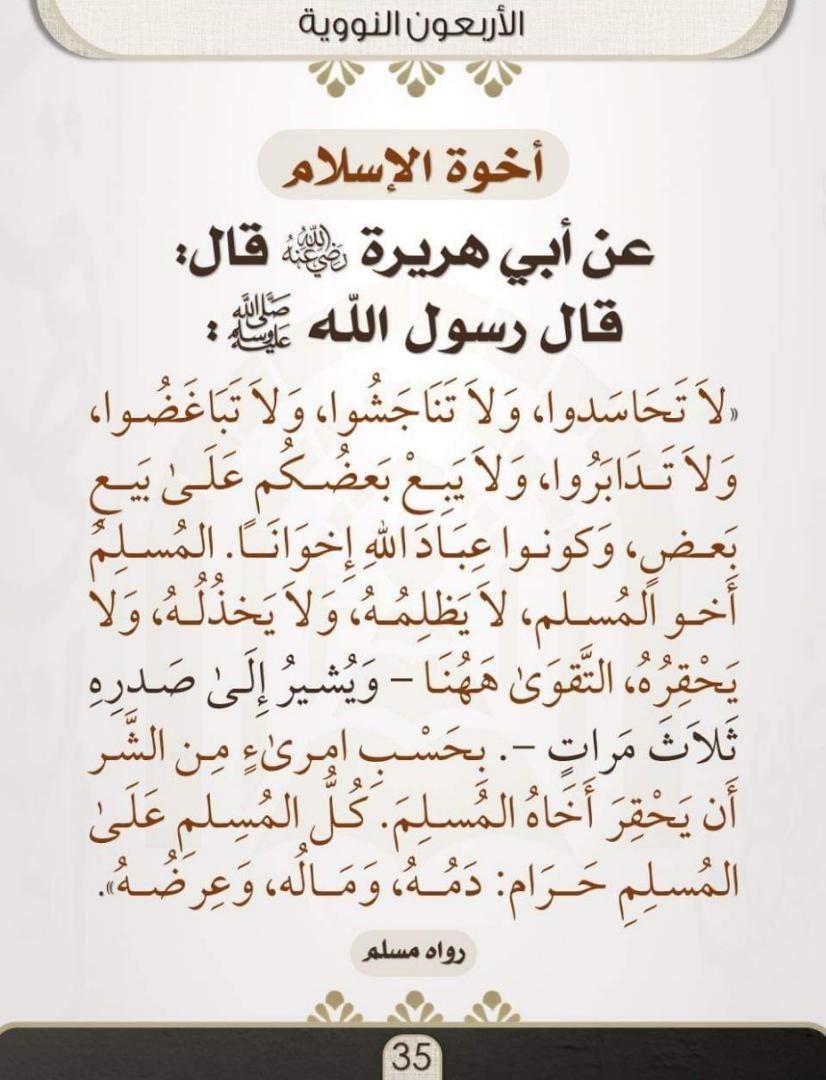 الأربعون النووية
أخوة الإسلام
عن أبي هريرة رضي الله عنه قال:
قال رسول الله صلى الله عليه وسلم :
«لاَ تَحَاسَدوا، وَلاَ تَنَاجَشُوا، وَلاَ تَبَاغَضُوا،
وَلاَ تَدَابَرُوا، وَلاَ يَبِعْ بَعضُكُم عَلَىٰ بَيعِ
بَعضٍ، وَكونوا عِبَادَ اللهِ إِخوَانَاً. المُسلِمُ
أَخو المُسلم، لاَ يَظلِمُهُ، وَلاَ يَخذُلُهُ، وَلا
يَحْقِرُهُ، التَّقوَىٰ هَهُنَا – وَيُشيرُ إِلَىٰ صَدرِهِ
ثَلاَثَ مَراتٍ –. بِحَسْبِ امرىٰءٍ مِن الشَّر
أَن يَحْقِرَ أَخَاهُ المُسلِمَ. كُلُّ المُسِلمِ عَلَىٰ
المُسلِمِ حَرَام: دَمُهُ، وَمَالُه، وَعِرضُهُ».
رواه مسلم
35